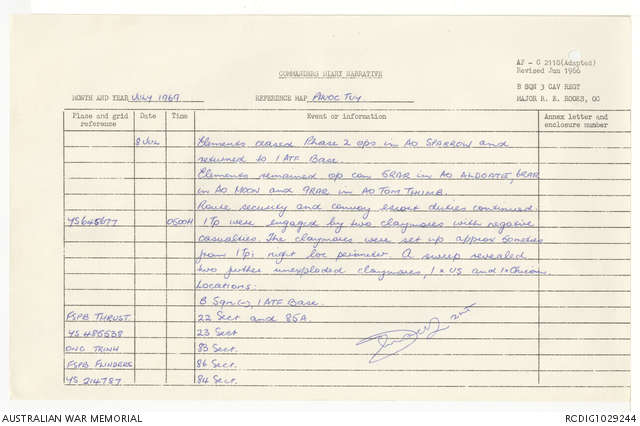 AF - G 2110(Adapted)
Revised Jun 1966
COMMANDERS DIARY NARRATIVE
B SQN 3 CAV REGT
MAJOR R. R. ROGES, OC
MONTH AND YEAR JULY 1969 REFERENCE MAP PHUOC TUY
Place and grid reference Date Time Event or information Annex letter and enclosure number
8 JUL Elements ceased Phase 2 ops in AO SPARROW and
returned to 1 ATF Base.
Elements remained op con 5RAR in AO ALDGATE, 6RAR
in AO MOON and 9RAR in AO TOM THUMB.
Route security and convoy escort duties continued.
YS645677 0500H 1 Tp were engaged by two claymores with negative
casualties. The claymores were set up approx 50metres
from 1 Tp's night loc perimeter. A sweep revealed
two further unexploded claymores, 1 x US and 1 x Chicom.
Locations:
B Sqn, 1 ATF Base.
FSPB THRUST 22 Sect and 85A.
YS 485538 23 Sect
ONG TRINH 83 Sect.
FSPB FLINDERS 86 Sect.
YS 214787 84 Sect.
AUSTRALIAN WAR MEMORIAL RCDIG1029244